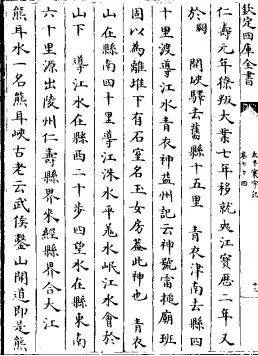 欽定四庫全書
太平寰宇記
卷七十四
仁壽元年獠叛大業七年移就夾江寶歷二年又
於闕 開峽驛去舊縣十五里 青衣津南去縣四
十里渡導江水青衣神益州記云神號雷塠廟班
固以為離堆下有石室名玉女房蓋此神也 青衣
山在縣南四十里導江洙水平羗水岷江水會於
山下 導江水在縣西二十步四望水在縣東南
六十里源出陵州仁壽縣界来經縣界合大江
熊耳水一名熊耳峽古老云武侯鑿山開道即是熊